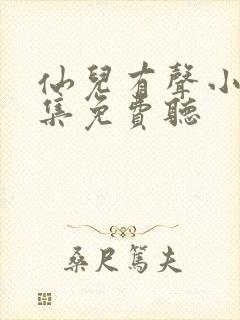 仙兒有聲小
集免費聽
桑尺篤夫